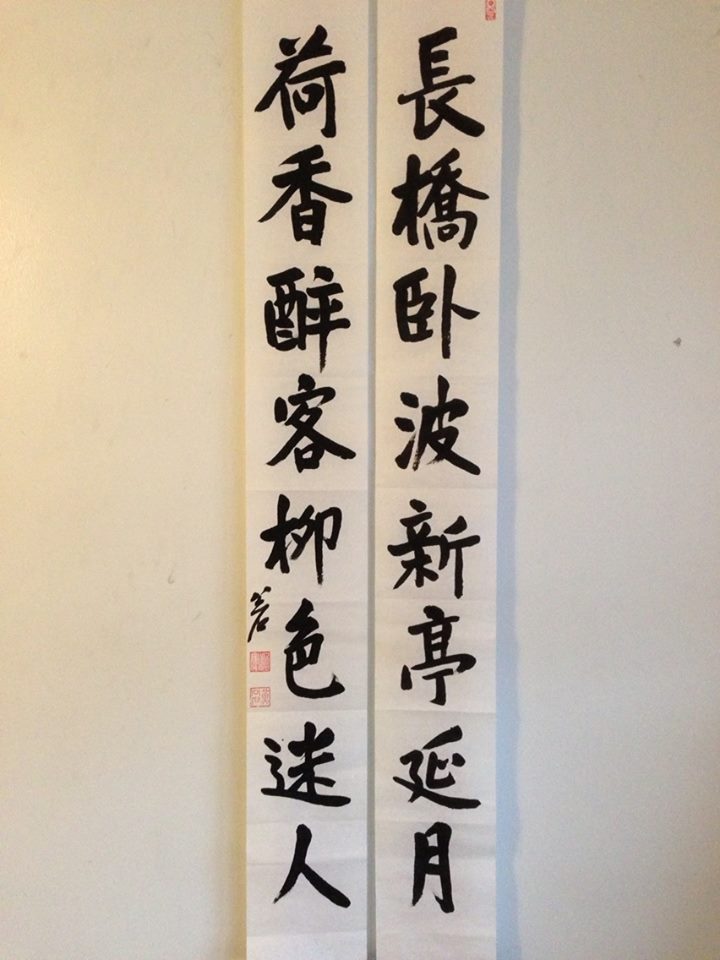 長橋卧波新亭延月
荷香醉客柳色迷人